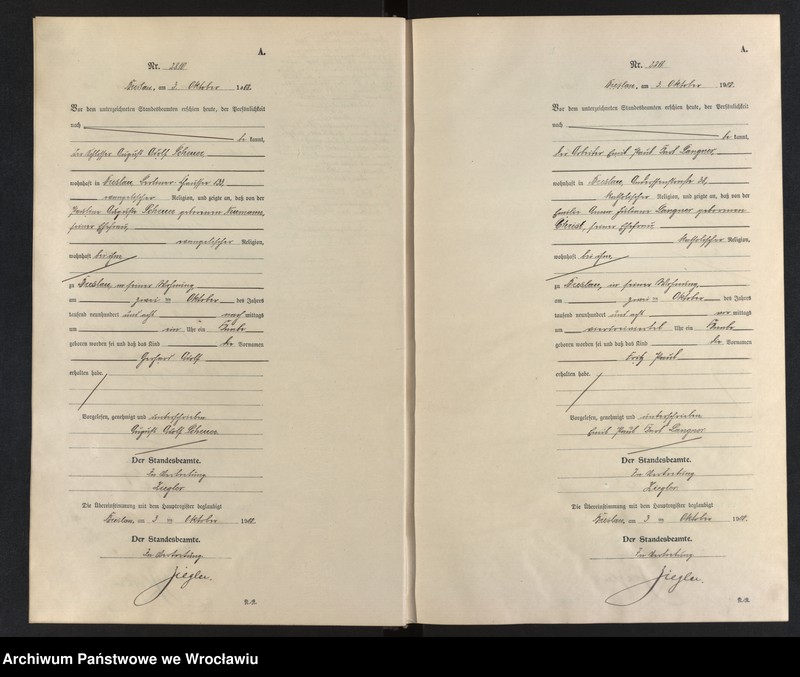 A.
Nr. 2810
Breslau, am 3. Oktober 1908.
Vor dem unterzeichneten Standesbeamten erschien heute, der Persönlichkeit
nach
be kannt,
der Schlosser August Adolf
wohnhaft in Breslau,
evangelischer Religion, und zeigte an, daß von der
Pauline Auguste geborenen
seiner Ehefrau,
evangelischer Religion,
wohnhaft bei ihm
zu Breslau, in seiner Wohnung
am zwei ten Oktober des Jahres
tausend neunhundert und acht nach mittags
um ein Uhr ein Knabe
geboren worden sei und daß das Kind die Vornamen
Gerhard Adolf
erhalten habe.
Vorgelesen, genehmigt und unterschrieben
August Adolf
Der Standesbeamte.
In Vertretung
Ziegler
Die Übereinstimmung mit dem Hauptregister beglaubigt
Breslau, am 3 ten Oktober 1908.
Der Standesbeamte.
In Vertretung
Ziegler.
A.
Nr. 2811
Breslau, am 3. Oktober 1908.
Vor dem unterzeichneten Standesbeamten erschien heute, der Persönlichkeit
nach
be kannt,
der Arbeiter Emil Paul Karl Langner,
wohnhaft in Breslau,
katholischer Religion, und zeigte an, daß von der
Emilie Anna Langner geborenen
seiner Ehefrau,
katholischer Religion,
wohnhaft bei ihm
zu Breslau, in seiner Wohnung
am zwei ten Oktober des Jahres
tausend neunhundert und acht vor mittags
um Uhr ein Knabe
geboren worden sei und daß das Kind die Vornamen
Fritz Paul
erhalten habe.
Vorgelesen, genehmigt und unterschrieben
Emil Paul Karl Langner
Der Standesbeamte.
In Vertretung
Ziegler
Die Übereinstimmung mit dem Hauptregister beglaubigt
Breslau, am 3 ten Oktober 1908.
Der Standesbeamte.
In Vertretung
Ziegler.
Archiwum Państwowe we Wrocławiu